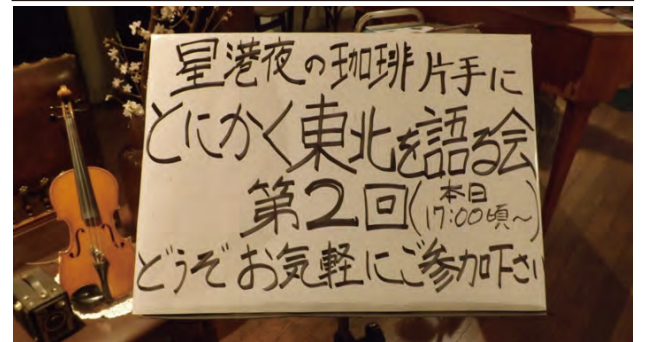 星港夜の珈琲片手に
とにかく東北を語る会
第2回(本日17:00頃～)
どうぞお気軽にご参加下さい